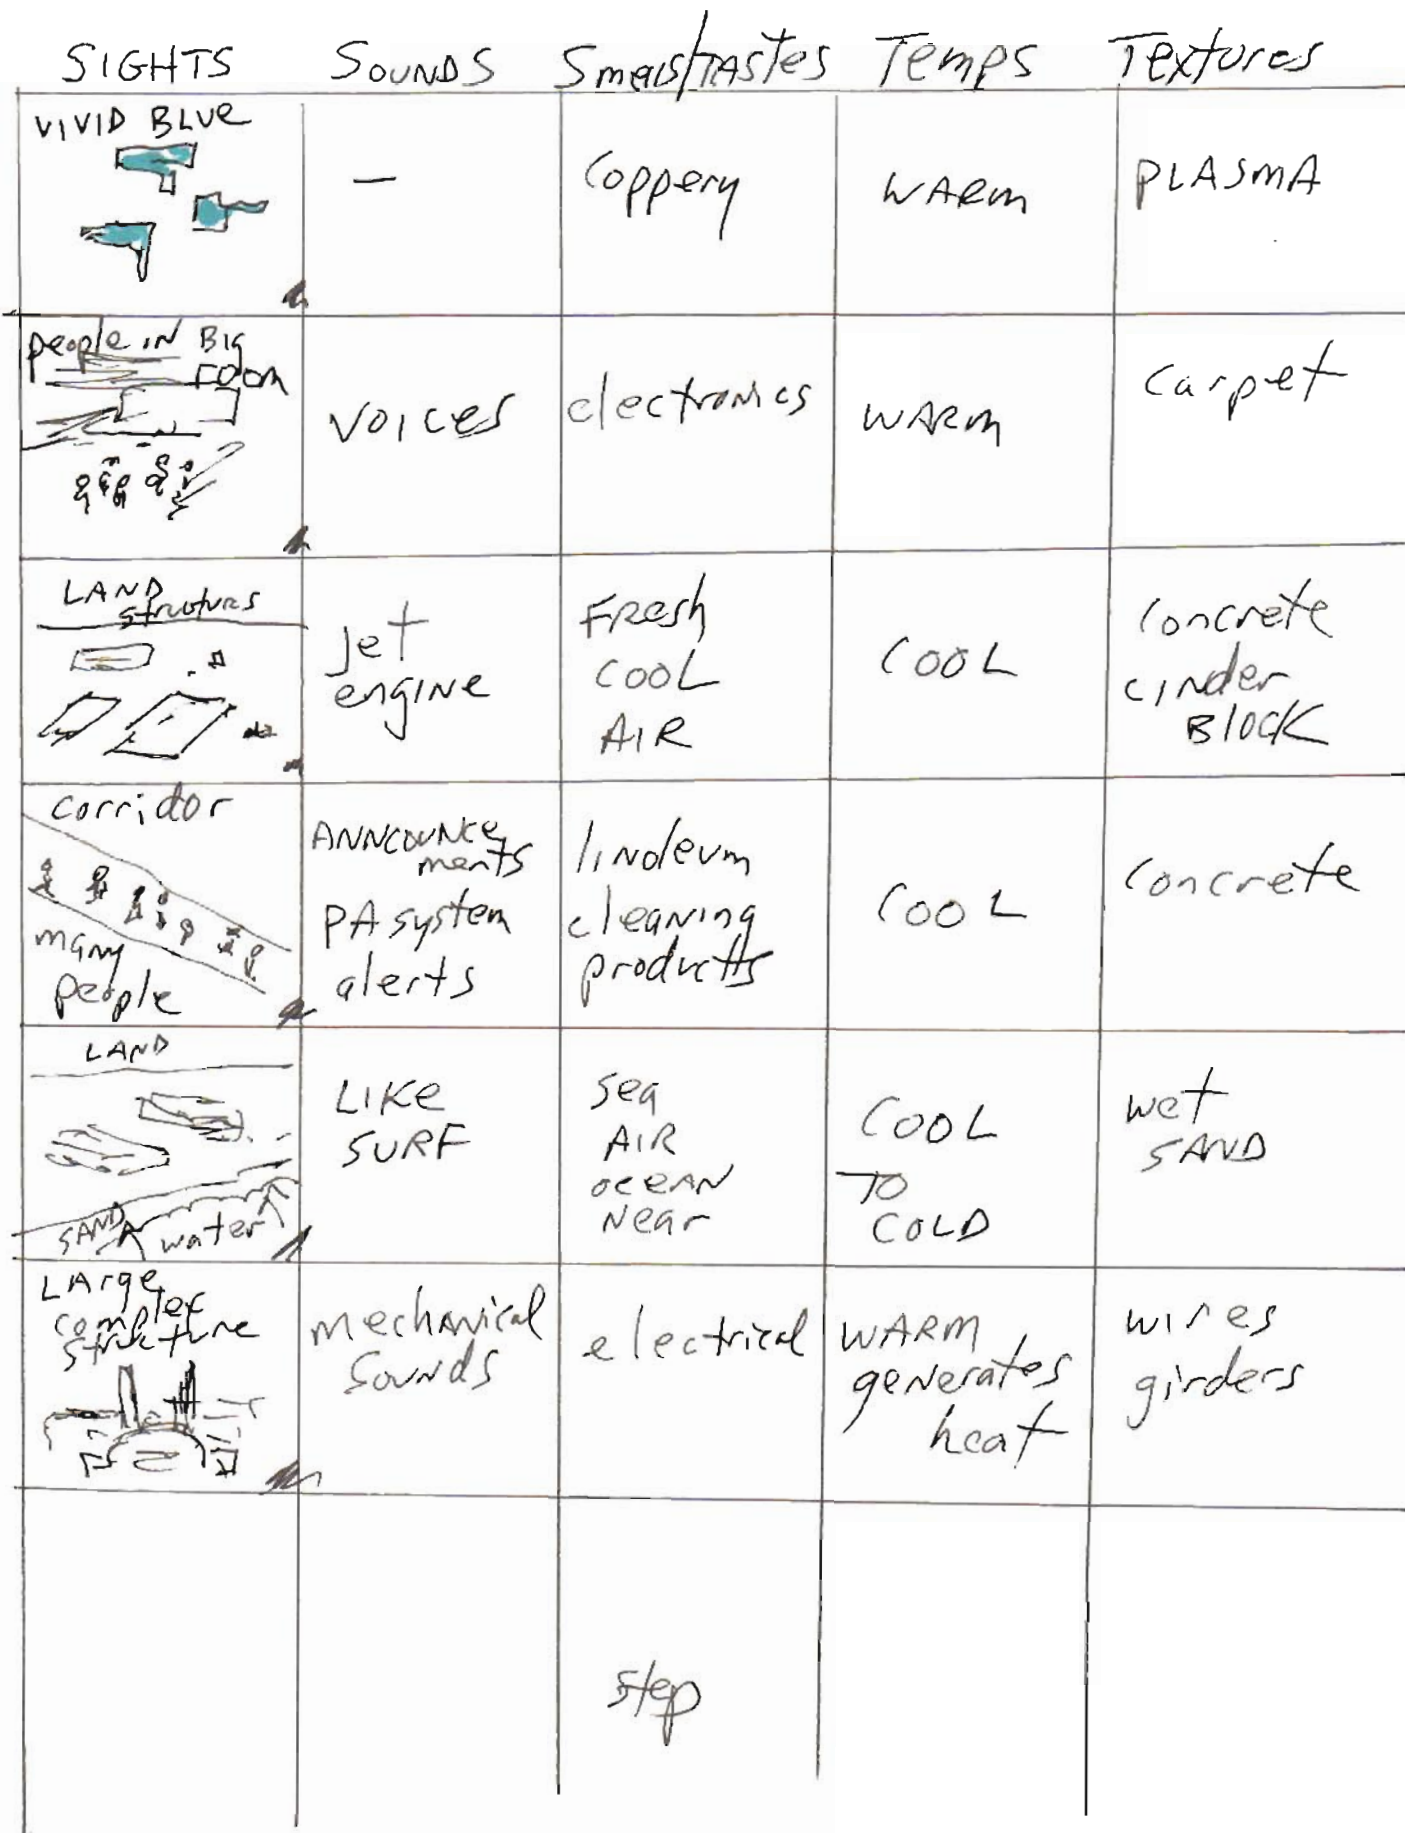 SIGHTS SOUNDS Smells/TASTES Temps Textures
VIVID BLUE
—
Coppery
WARM
PLASMA
people IN BIG
ROOM
VOICES
electronics
WARM
Carpet
LAND
structurs
Jet
engINE
FResh
COOL
AIR
COOL
Concrete
cINder
BlOCK
corridor
many
people
ANNCOUNCE
ments
PA system
alerts
lINoleum
cleaNINg
products
COOL
Concrete
LAND
SAND
water
LIKE
SURF
sea
AIR
oceAN
Near
COOL
TO
COLD
wet
SAND
LArge
complex
structure
mechaNical
SouNds
electrical
WARM
geNerates
heat
wires
girders
step